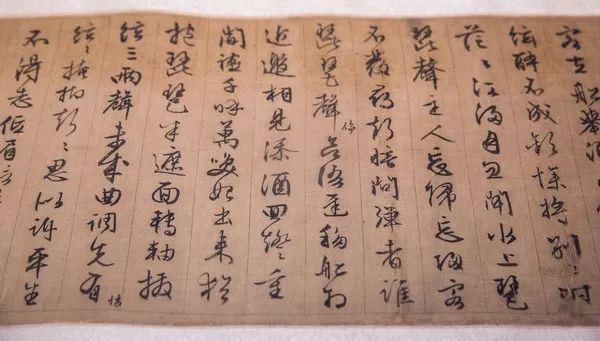 客在船舉酒
絃醉不成歡慘將別〻時
茫〻江浸月忽聞水上琵
琶聲主人忘歸忘客
不發尋聲暗問彈者誰
琵琶聲停欲語遲移船相
近邀相見添酒回燈〻重
開讌千呼萬喚始出來猶
抱琵琶半遮面轉軸撥
絃三兩聲未成曲調先有情
絃〻掩抑聲〻思似訴平生
不得志低眉